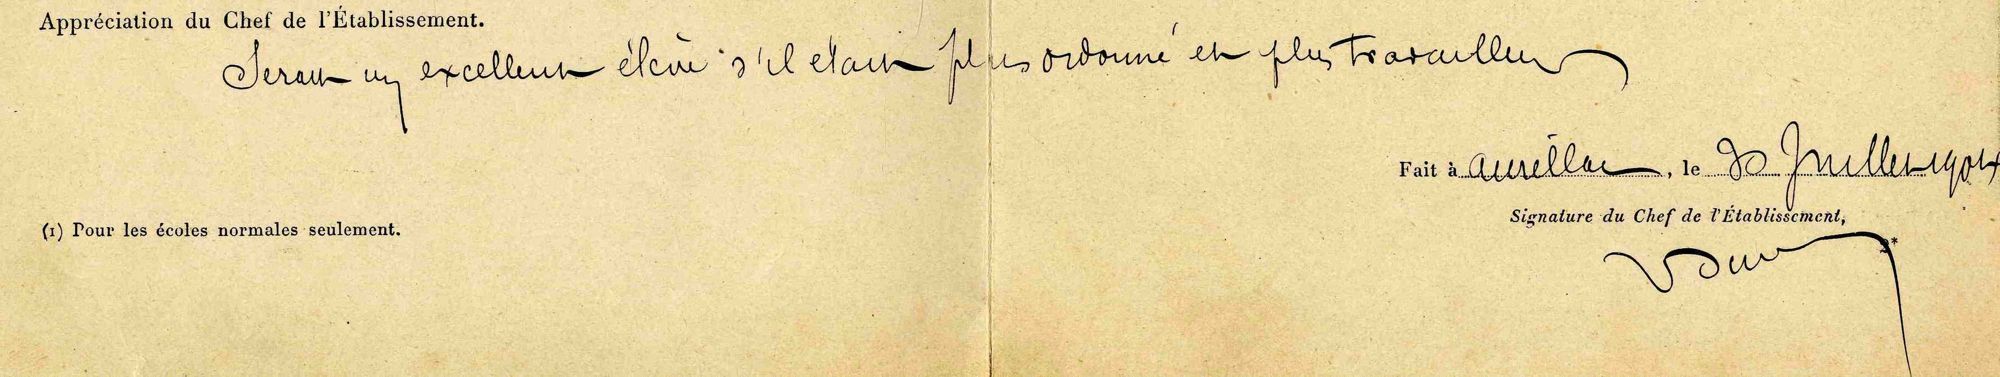 Appréciation du Chef de l'Établissement.
Serait un excellent élève s'il était plus ordonné et plus travailleur
Fait à Aurillac, le 30 Juillet
(1) Pour les écoles normales seulement.
Signature du Chef de l'Établissement,